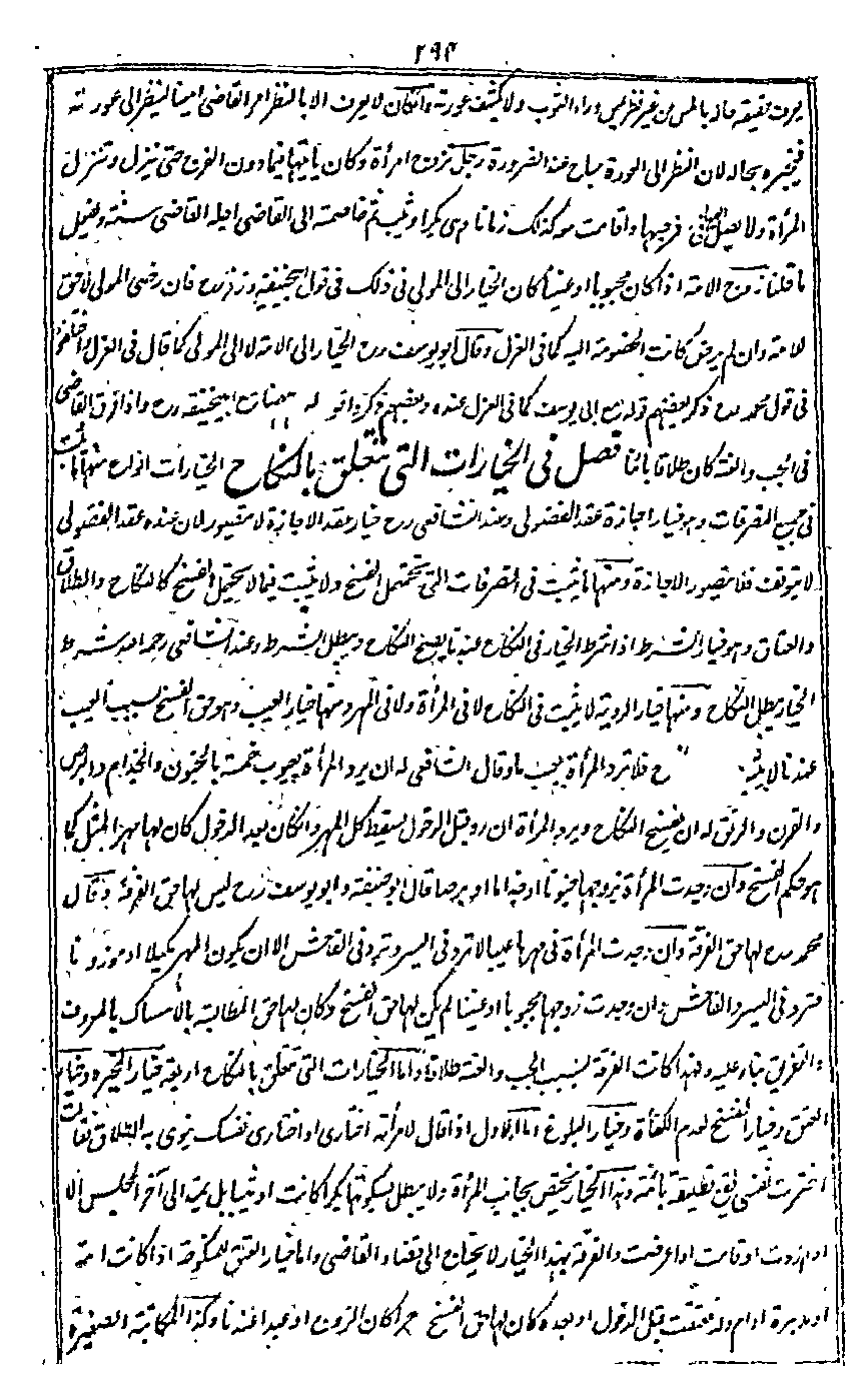 ٢٩٤
يعرف حقيقة حاله بالمس من غير نظر يمس وراء الثوب ولا يكشف عورته وان كان لا يعرف الا بالنظر امر القاضى امينا لينظر الى عورته
فيخبره بحاله لان النظر الى العورة مباح عند الضرورة رجل تزوج امرأة وكان ياتيها فيما دون الفرج حتى ينزل وتنزل
المرأة ولا يصل الى فرجها واقامت معه كذلك زمانا وهى بكر او ثيب ثم خاصمته الى القاضى اجله القاضى سنة
ما قلنا زوج الامة اذا كان مجبوبا او عنينا كان الخيار الى المولى فى ذلك فى قول ابيحنيفة وزفر رح فان رضى المولى لا حق
للامة وان لم يرض كانت الخصومة اليه كما فى العزل وقال ابو يوسف رح الخيار الى الامة لا الى المولى كما قال فى العزل واختلفوا
فى قول محمد رح ذكر بعضهم قوله مع ابى يوسف كما فى العزل عنده وبعضهم ذكروا قوله ههنا مع ابيحنيفة رح واذا فرق القاضى
فى الجب والعنة كان طلاقا بائنا فصل فى الخيارات التى تتعلق بالنكاح الخيارات انواع منها ما يثبت
فى جميع التصرفات وهو خيار اجازة عقد الفضولى وعند الشافعى رح خيار عقد الاجازة لا يتصور لان عنده عقد الفضولى
لا يتوقف فلا يتصور الاجازة ومنها ما يثبت فى التصرفات التى تحتمل الفسخ ولا يثبت فيما لا يحتمل الفسخ كالنكاح والطلاق
والعتاق وهو خيار الشرط اذا شرط الخيار فى النكاح عندنا يصح النكاح ويبطل الشرط وعند الشافعى رحمه الله شرط
الخيار يبطل النكاح ومنها خيار الروية لا يثبت فى النكاح لا فى المرأة ولا فى المهر ومنها خيار العيب وهو حق الفسخ بسبب العيب
عندنا لا يثبت ح فلا ترد المرأة بعيب ما وقال الشافعى له ان يرد المرأة بعيوب خمسة بالجنون والجذام والبرص
والقرن والرتق له ان يفسخ النكاح ويرد المرأة ان رد قبل الدخول يسقط كل المهر وان كان بعد الدخول كان لها مهر المثل كما
هو حكم الفسخ وان وجدت المرأة بزوجها جنونا او جذاما او برصا قال ابو حنيفة وابو يوسف رح ليس لها حق الفرقة وقال
محمد رح لها حق الفرقة وان وجدت المرأة فى مهرها عيبا لا ترد فى اليسير وترد فى الفاحش الا ان يكون المهر مكيلا او موزونا
فترد فى اليسير والفاحش وان وجدت زوجها مجبوبا او عنينا لم يكن لها حق الفسخ وكان لها حق المطالبة بالامساك بالمعروف
والتفريق بناء عليه ولهذا كانت الفرقة بسبب الجب والعنة طلاقا واما الخيارات التى تتعلق بالنكاح اربعة خيار المخيرة وخيار
العتق وخيار الفسخ لعدم الكفأة وخيار البلوغ اما الاول اذا قال لامرأته اختارى او اختارى نفسك ينوى به الطلاق فقالت
اخترت نفسى يقع تطليقة بائنة وهذا الخيار يختص بجانب المرأة ولا يبطل بسكوتها بكرا كانت او ثيبا بل يمتد الى آخر المجلس الا
اذا ردت او قامت او اعرضت والفرقة بهذا الخيار لا يحتاج الى قضاء القاضى واما خيار العتق للمنكوحة اذا كانت امة
او مدبرة او ام ولد فعتقت قبل الدخول او بعده كان لها حق الفسخ حرا كان الزوج او عبدا عندنا وكذا المكاتبة الصغيرة